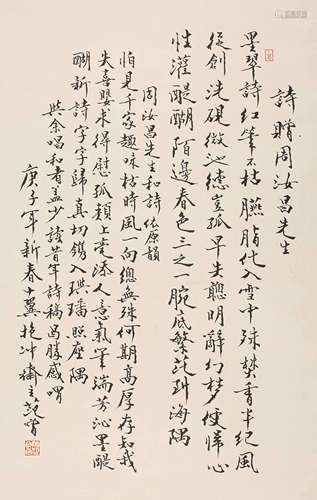 詩贈周汝昌先生
墨翠詩紅筆不枯臙脂化入雪中殊焚香半紀風
從創洗硯微池德豈孤早失聰明辭幻夢使悌心
性灌醍醐陌邊春色三之一腕底繁花到海隅
周汝昌先生和詩依原韻
怕見千家趣味枯時風一向總無殊何期高厚存知我
失喜嬰求得慰孤頰上毫添人意氣筆端芳沁墨醍
醐新詩字字歸真切鐫入璵璠照座隅
與余唱和者孟少讀昔年詩稿曷勝感喟
庚子年新春十翼